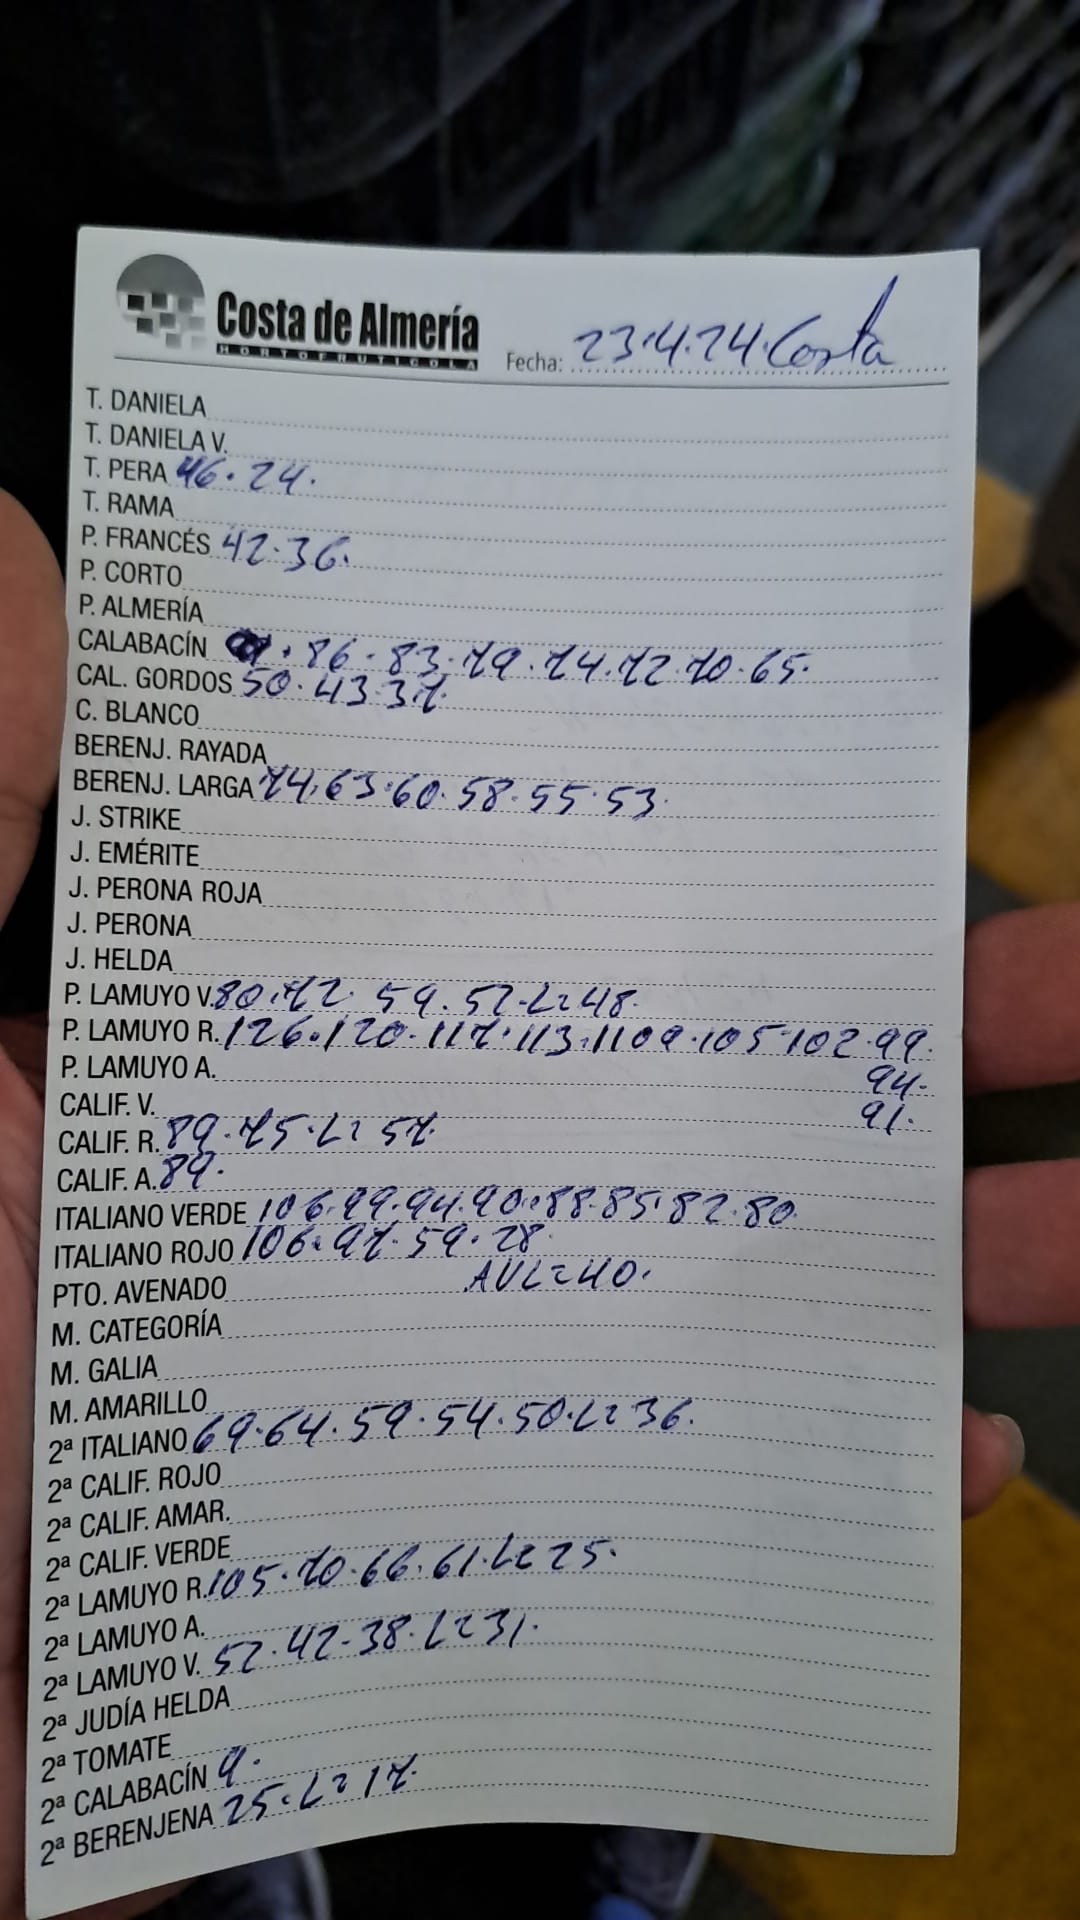 Costa de Almería
HORTOFRUTICOLA
Fecha: 23.4.24. Costa
T. DANIELA
T. DANIELA V.
T. PERA 46. 24.
T. RAMA
P. FRANCÉS 42. 36.
P. CORTO
P. ALMERÍA
CALABACÍN . 86. 83. 79. 74. 72. 70. 65.
CAL. GORDOS 50. 43. 37.
C. BLANCO
BERENJ. RAYADA
BERENJ. LARGA 74. 63. 60. 58. 55. 53.
J. STRIKE
J. EMÉRITE
J. PERONA ROJA
J. PERONA
J. HELDA
P. LAMUYO V. 80. 72. 59. 52. L=48.
P. LAMUYO R. 126. 120. 117. 113. 1109. 105. 102. 99.
P. LAMUYO A. 94.
CALIF. V. 91.
CALIF. R. 89. 75. L=57.
CALIF. A. 89.
ITALIANO VERDE 106. 99. 94. 90. 88. 85. 82. 80.
ITALIANO ROJO 106. 97. 59. 28.
PTO. AVENADO AVL=40.
M. CATEGORÍA
M. GALIA
M. AMARILLO
2ª ITALIANO 69. 64. 59. 54. 50. L=36.
2ª CALIF. ROJO
2ª CALIF. AMAR.
2ª CALIF. VERDE
2ª LAMUYO R. 105. 70. 66. 61. L=25.
2ª LAMUYO A.
2ª LAMUYO V. 52. 42. 38. L=31.
2ª JUDÍA HELDA
2ª TOMATE
2ª CALABACÍN 9.
2ª BERENJENA 25. L=17.